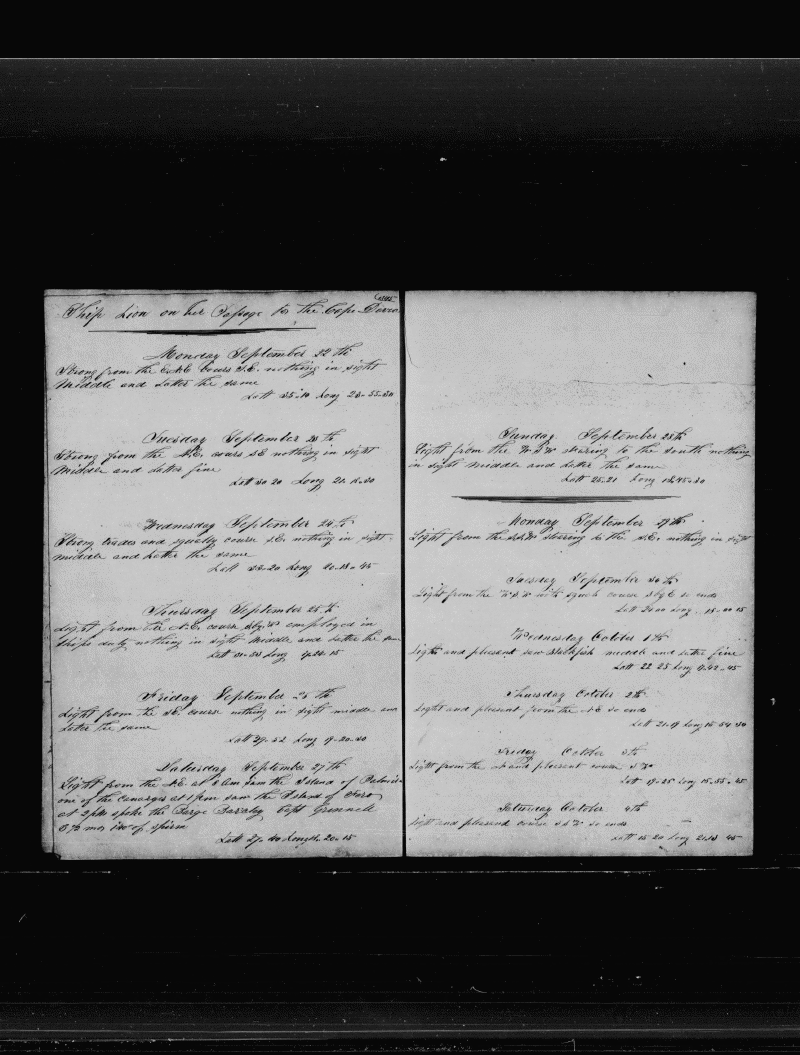 Ship Lion on her Passage to the Cape
Monday September 22 th
Strong from the cours S.E. nothing in sight
Middle and Latter the same
Latt 35-10 Long 23-55-30
Tuesday September 23 th
Strong from the N.E. cours SE nothing in sight
Middle and Later fine
Latt 30 20 Long 21
Wednesday September 24 th
Strong trades and squally course S.E. nothing in sight
middle and Latter the same
Latt Long 20-13-45
Thursday September 25 th
Light from the N.E. course SbyW employed in
ships duty nothing in sight Middle and Latter the
Latt Long 15
Friday September 26 th
Light from the course nothing in sight middle and
Later the same
Latt 29-52 Long 19-20-30
Saturday September 27 th
Light from the N.E. at 6 Am saw the Island of
one of the Canarys at 1 pm saw the Island of Fero
at 2 pm spoke the Barge Capt Grinnell
mos of sperm
Latt 27-40 Length 20-15
Sunday September 28th
Light from the stearing to the South nothing
in sight Middle and Later the same
Latt 25-21 Long 45-30
Monday September 29th
Light from the stearing to the nothing in sight
Tuesday September 30 th
Light from the with course SbyE so ends
Latt Long 15
Wednesday October 1th
Light and plesent saw middle and latter fine
Latt 22 25 Long 45
Thursday October 2th
Light and plesent from the N.E so ends
Latt 21-19 Long 18 54-30
Friday October 3th
Light from the and plesent course
Latt 19-25 Long 45
Saturday October 4th
Light and plesent course so ends
Latt 15 20 Long 45